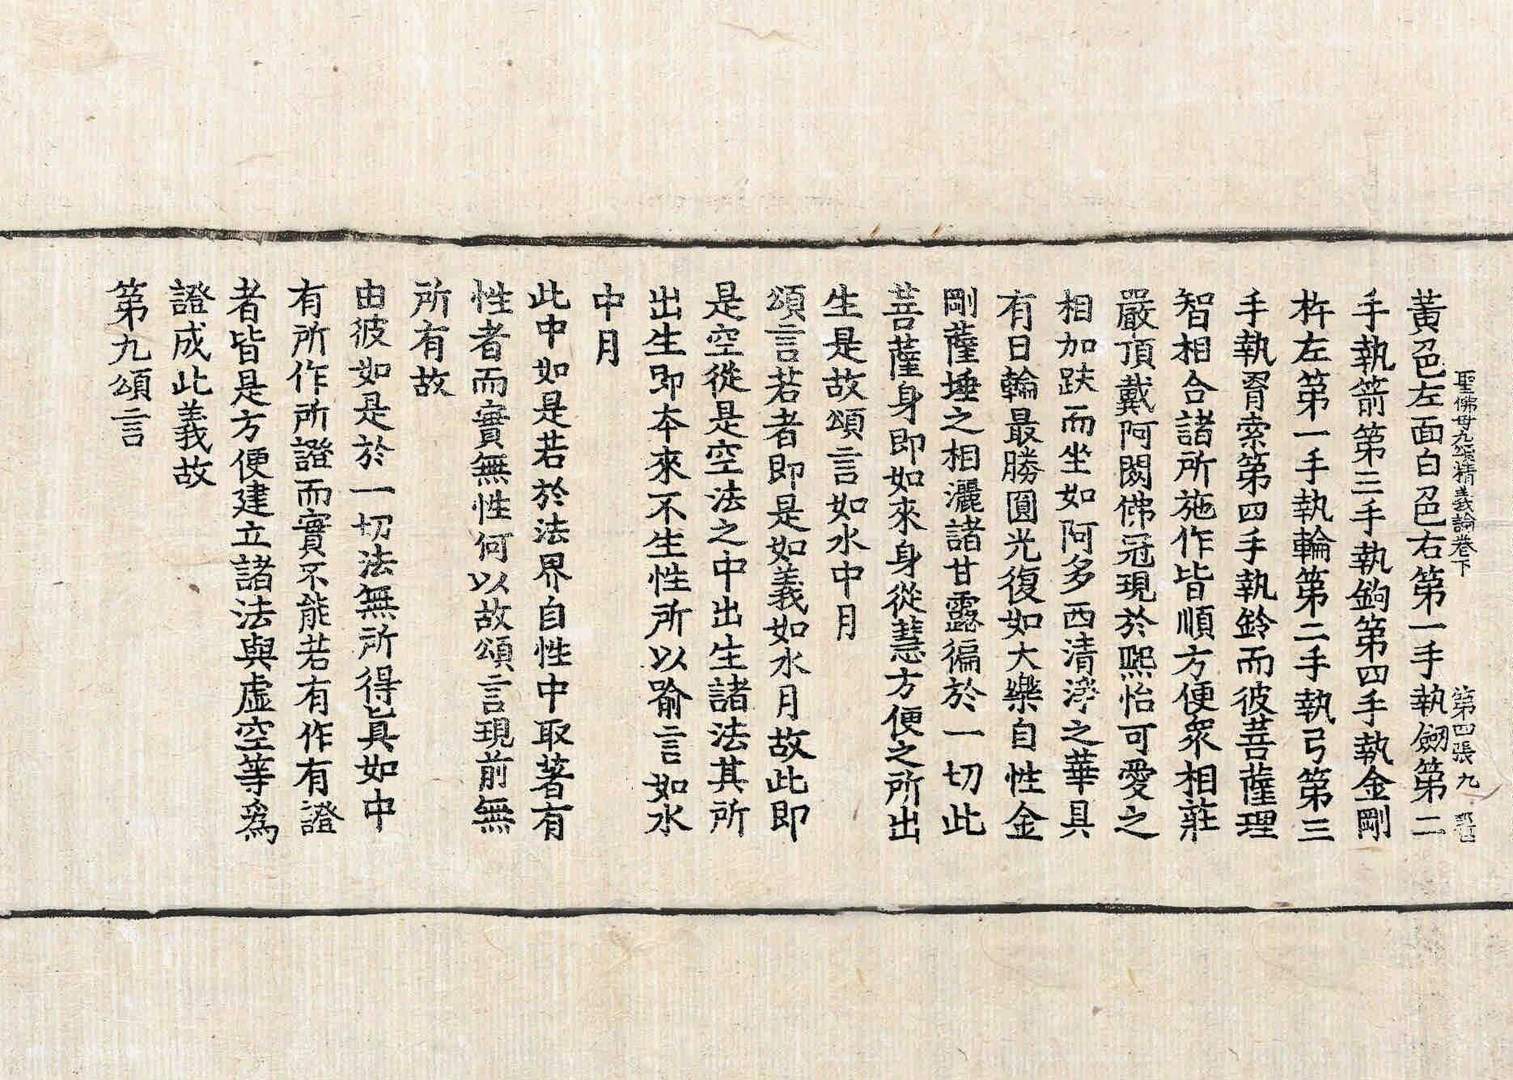 聖佛母九頌精義論卷下　第四張　九
黃色左面白色右第一手執劒第二
手執箭第三手執鉤第四手執金剛
杵左第一手執輪第二手執弓第三
手執罥索第四手執鈴而彼菩薩理
智相合諸所施作皆順方便衆相莊
嚴頂戴阿閦佛冠現於熈怡可愛之
相加趺而坐如阿多西清淨之華具
有日輪最勝圓光復如大樂自性金
剛薩埵之相灑諸甘露徧於一切此
菩薩身即如來身從慧方便之所出
生是故頌言如水中月
頌言若者即是如義如水月故此即
是空從是空法之中出生諸法其所
出生即本來不生性所以喻言如水
中月
此中如是若於法界自性中取著有
性者而實無性何以故頌言現前無
所有故
由彼如是於一切法無所得眞如中
有所作所證而實不能若有作有證
者皆是方便建立諸法與虛空等爲
證成此義故
第九頌言